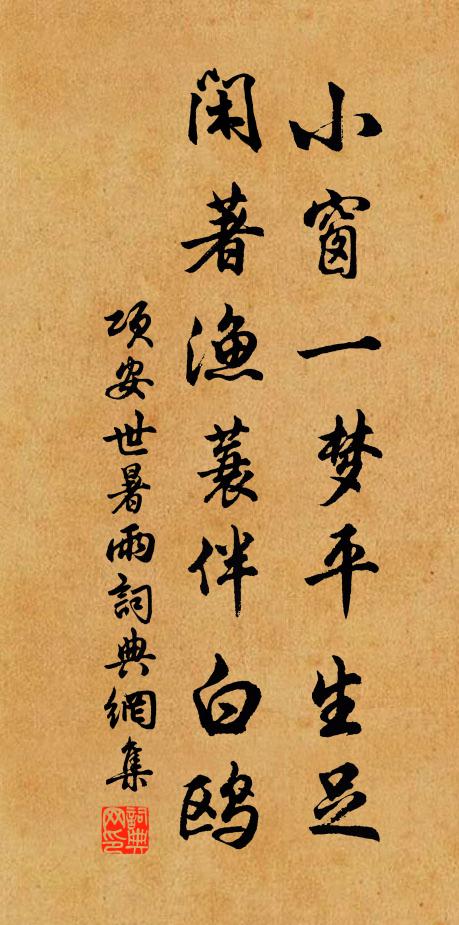 小窗一梦平生足
闲著渔蓑伴白鸥
项安世暑雨詞典網集
詞典网印